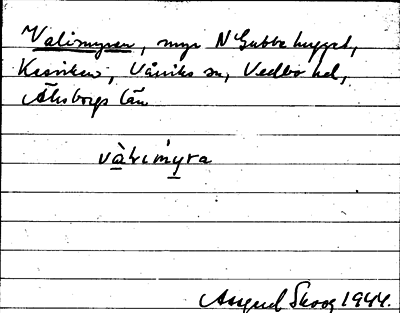 Valimyren, myr N Gubbehugget,
Kesviken, Vårviks sn, Vedbo hd,
Älvsborgs län
vàlimyra
Assgerd Skoog 1944.